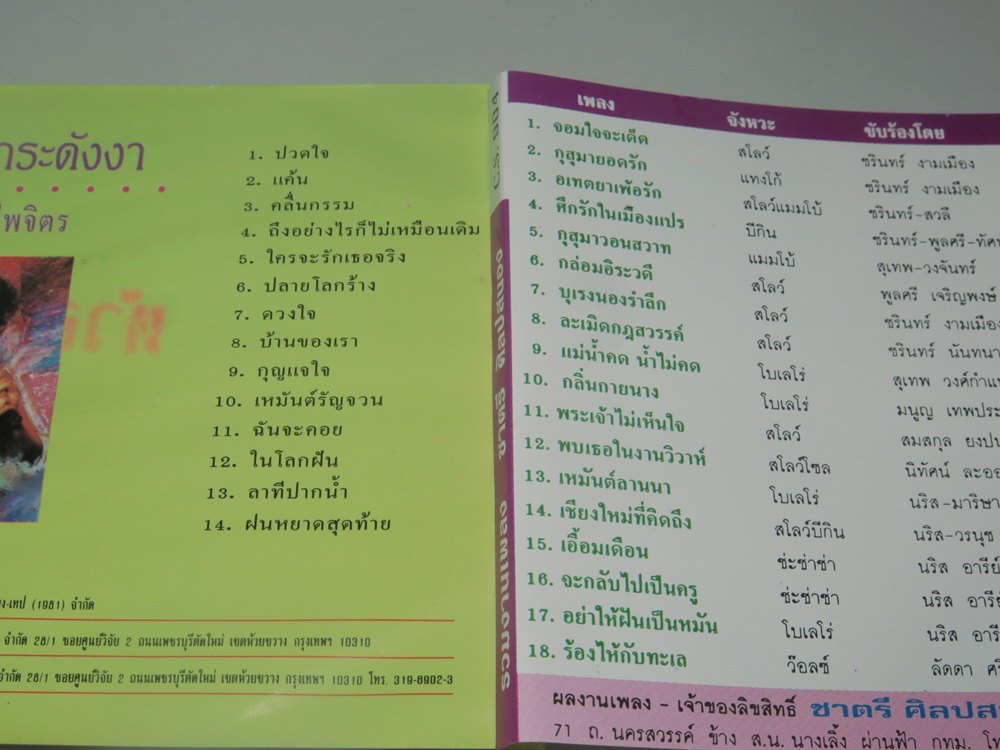 กระดังงา
ไพจิตร
1. ปวดใจ
2. แค้น
3. คลื่นกรรม
4. ถึงอย่างไรก็ไม่เหมือนเดิม
5. ใครจะรักเธอจริง
6. ปลายโลกร้าง
7. ดวงใจ
8. บ้านของเรา
9. กุญแจใจ
10. เหมันต์รัญจวน
11. ฉันจะคอย
12. ในโลกฝัน
13. ลาทีปากน้ำ
14. ฝนหยาดสุดท้าย
เทป (1981) จำกัด
จำกัด 28/1 ซอยศูนย์วิจัย 2 ถนนเพชรบุรีตัดใหม่ เขตห้วยขวาง กรุงเทพฯ 10310
จำกัด 28/1 ซอยศูนย์วิจัย 2 ถนนเพชรบุรีตัดใหม่ เขตห้วยขวาง กรุงเทพฯ 10310 โทร. 319-6902-3
เพลง จังหวะ ขับร้องโดย
1. จอมใจจะเด็ด สโลว์ ชรินทร์ งามเมือง
2. กุสุมายอดรัก แทงโก้ ชรินทร์ งามเมือง
3. อเทตยาเพ้อรัก สโลว์แมมโบ้ ชรินทร์-สวลี
4. ศึกรักในเมืองแปร บีกิน ชรินทร์-พูลศรี-ทัศ
5. กุสุมาวอนสวาท แมมโบ้ สุเทพ-วงจันทร์
6. กล่อมอิระวดี สโลว์ พูลศรี เจริญพงษ์
7. บุเรงนองรำลึก สโลว์ ชรินทร์ งามเมือง
8. ละเมิดกฎสวรรค์ สโลว์ ชรินทร์ นันทนา
9. แม่น้ำคด น้ำไม่คด โบเลโร่ สุเทพ วงศ์กำแ
10. กลิ่นกายนาง โบเลโร่ มนูญ เทพประ
11. พระเจ้าไม่เห็นใจ สโลว์ สมสกุล ยงปร
12. พบเธอในงานวิวาห์ สโลว์โซล นิทัศน์ ละออ
13. เหมันต์ลานนา โบเลโร่ นริส-มาริษา
14. เชียงใหม่ที่คิดถึง สโลว์บีกิน นริส-วรนุช
15. เอื้อมเดือน ช่ะช่าช่า นริส อารีย์
16. จะกลับไปเป็นครู ช่ะช่าช่า นริส อารีย์
17. อย่าให้ฝันเป็นหมัน โบเลโร่ นริส อารี
18. ร้องไห้กับทะเล ว๊อลซ์ ลัดดา ศรี
ผลงานเพลง - เจ้าของลิขสิทธิ์ ชาตรี ศิลปส
71 ถ. นครสวรรค์ ข้าง ส.น. นางเลิ้ง ผ่านฟ้า กทม. โท